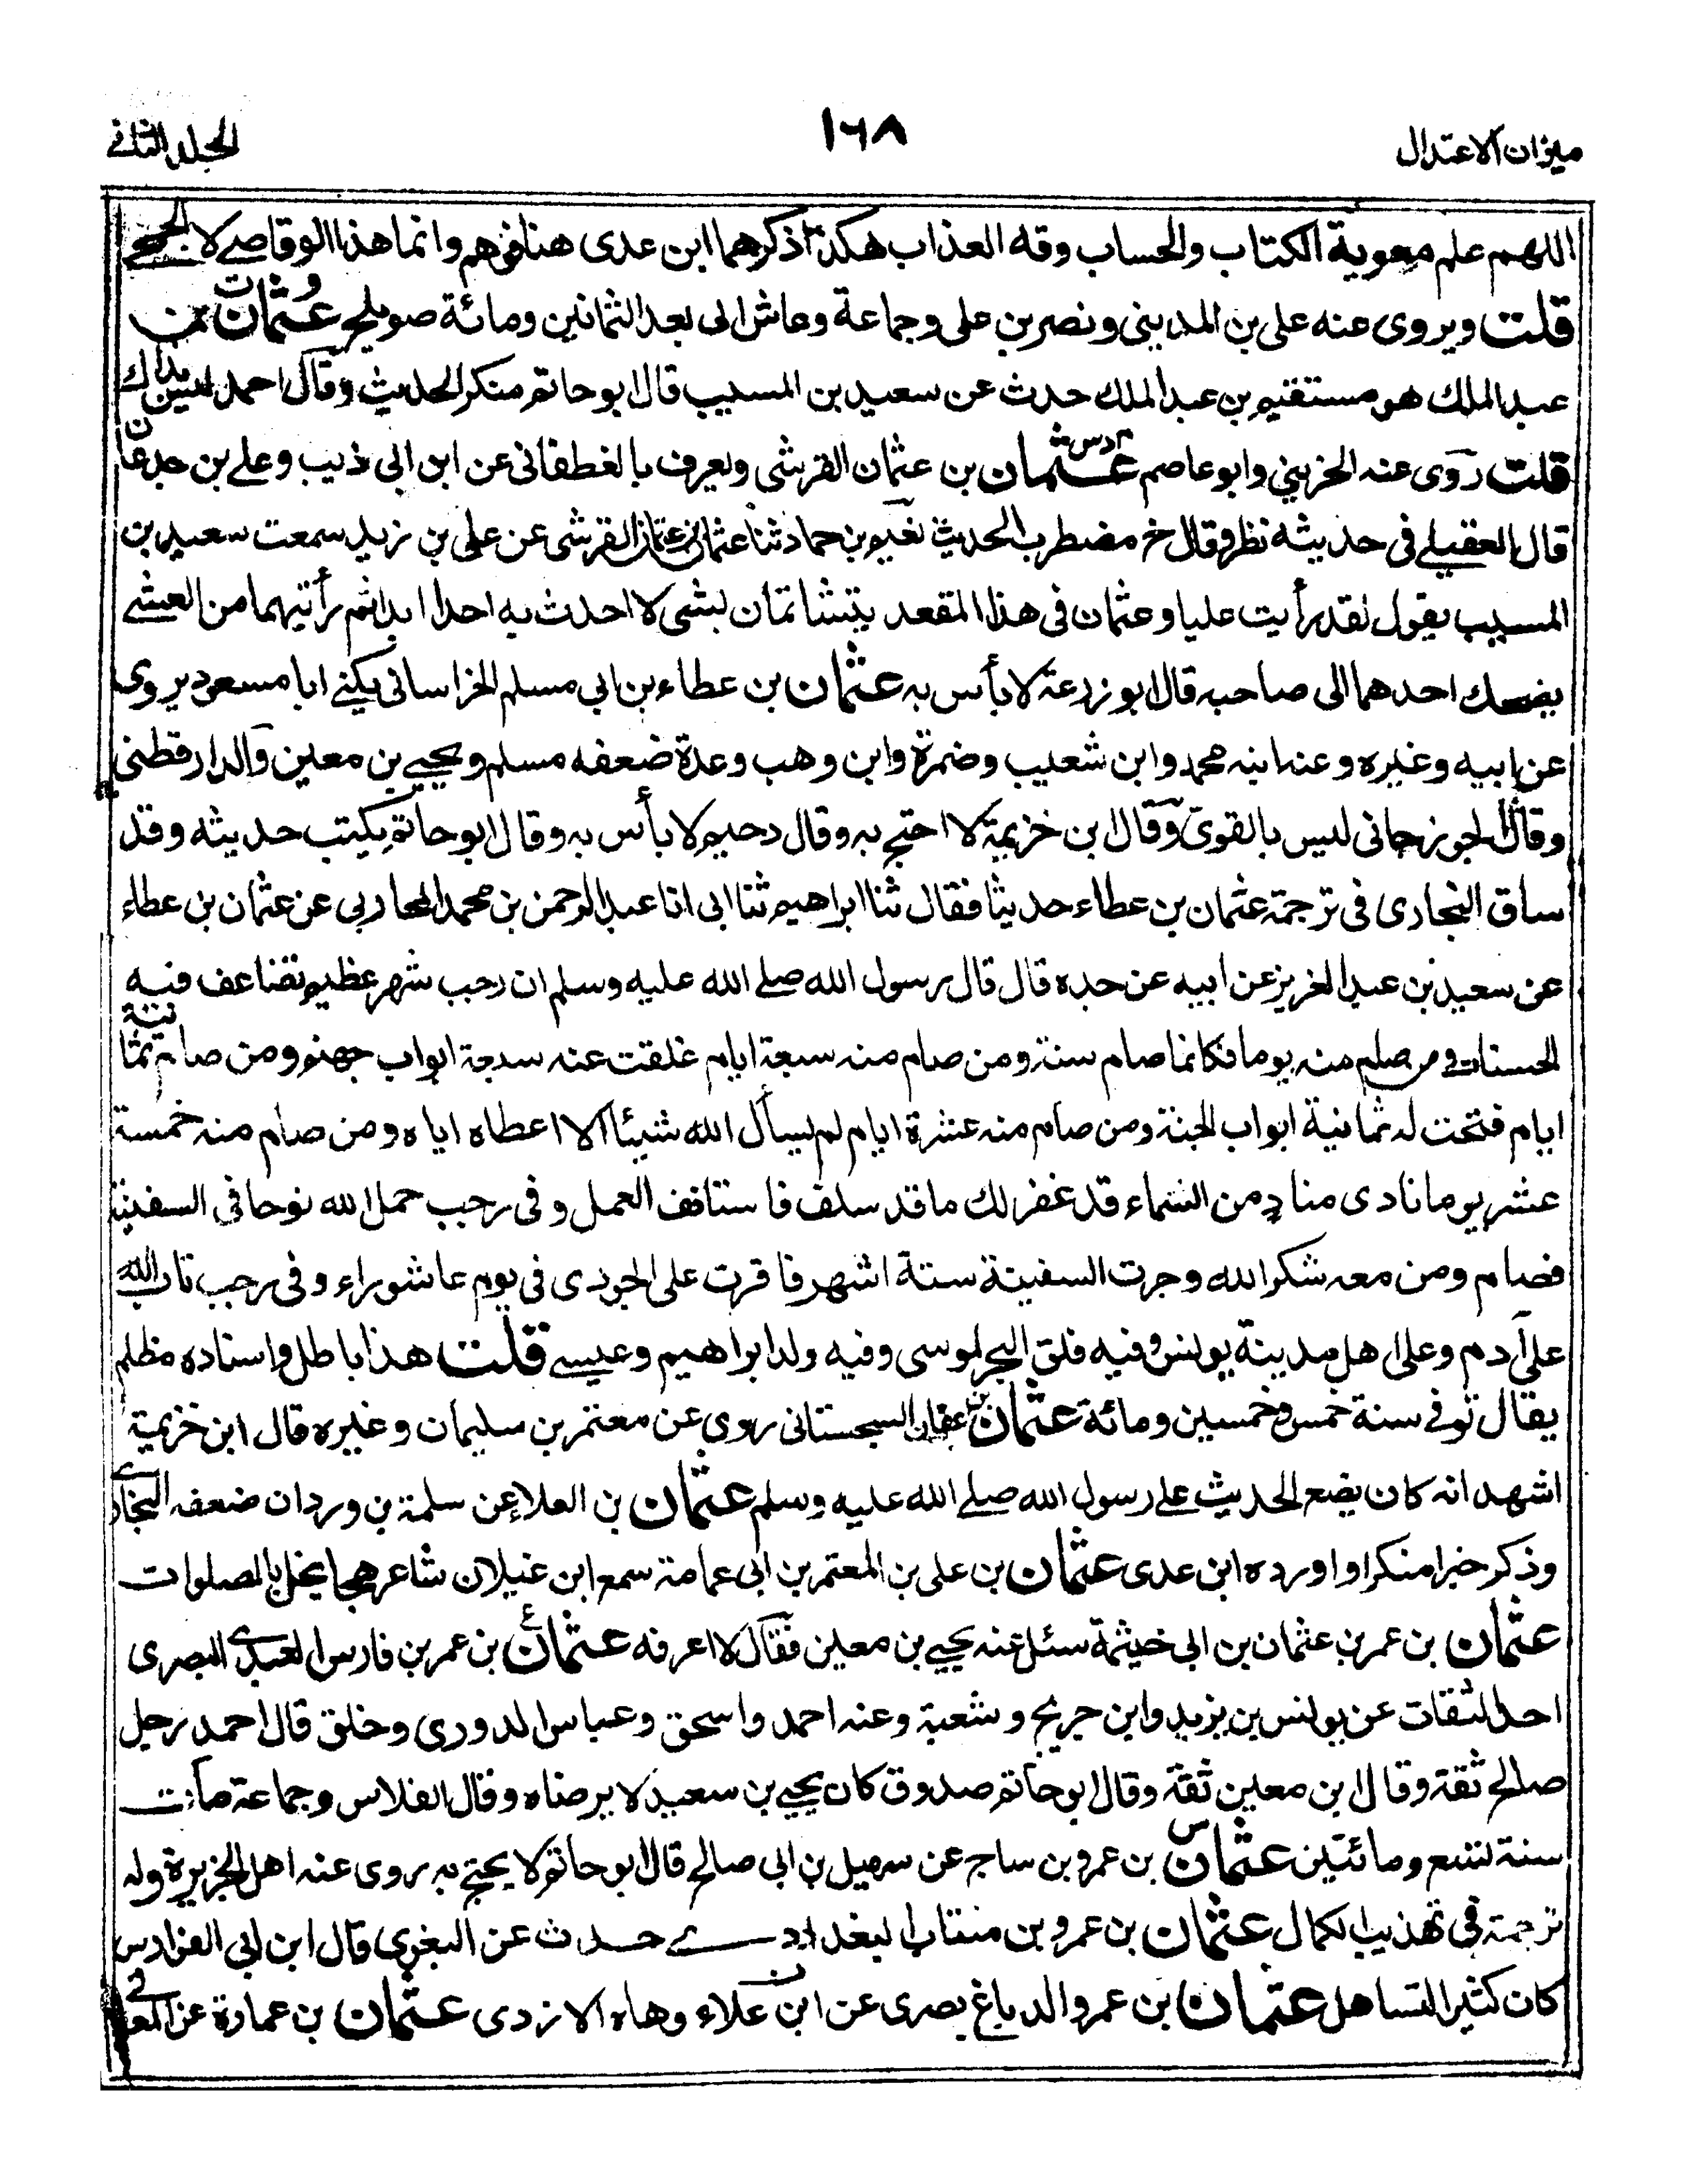 ميزان الاعتدال
١٦٨
الجلد الثاني
اللهم علم معوية الكتاب والحساب وقه العذاب هكذا ذكرهما ابن عدى هنا فوهم وانما هذا الوقاصے لا الجمحے
قلت ويروى عنه على بن المدينى ونصر بن على وجماعة وعاش الى بعد الثمانين ومائة صويلح عثمان بن
عبد الملك هو مستقيم بن عبد الملك حدث عن سعيد بن المسيب قال ابو حاتم منكر الحديث وقال احمد ليس بذاك
قلت روى عنه الخريبي وابو عاصم عثمان بن عثمان القرشى ويعرف بالغطفانى عن ابن ابى ذيب وعلے بن جدعان
قال العقيلے فى حديثه نظر وقال خ مضطرب الحديث نعيم بن حماد ثنا عثمان بن عثمان القرشى عن على بن زيد سمعت سعيد بن
المسيب يقول لقد رأيت عليا وعثمان فى هذا المقعد يتشاتمان بشى لا احدث به احدا ابدا ثم رأتيهما من العشے
يضحك احدهما الى صاحبه قال ابو زرعة لا بأس به عثمان بن عطاء بن ابى مسلم الخراسانى يكنے ابا مسعود يروى
عن ابيه وغيره وعنه ابنه محمد وابن شعيب وضمرة وابن وهب وعدة ضعفه مسلم ويحيے بن معين والدارقطنى
وقال الجوزجانى ليس بالقوى وقال ابن خزيمة لا احتج به وقال دحيم لا بأس به وقال ابو حاتم يكتب حديثه وقد
ساق البخارى فى ترجمة عثمان بن عطاء حديثا فقال ثنا ابراهيم ثنا ابى انا عبد الرحمن بن محمد المحاربى عن عثمان بن عطاء
عن سعيد بن عبد العزيز عن ابيه عن جده قال قال رسول الله صلے الله عليه وسلم ان رجب شهر عظيم تضاعف فيه
الحسنات ومن صام منه يوما فكانما صام سنة ومن صام منه سبعة ايام غلقت عنه سبعة ابواب جهنم ومن صام ثمانية
ايام فتحت له ثمانية ابواب الجنة ومن صام منه عشرة ايام لم يسأل الله شيئا الا اعطاه اياه ومن صام منه خمسة
عشر يوما نادى مناد من السماء قد غفر لك ما قد سلف فاستانف العمل وفى رجب حمل الله نوحا فى السفينة
فصام ومن معه شكرا لله وجرت السفينة ستة اشهر فاقرت على الجودى فى يوم عاشوراء وفى رجب تاب الله
على آدم وعلى اهل مدينة يونس وفيه فلق البحر لموسى وفيه ولد ابراهيم وعيسے قلت هذا باطل واسناده مظلم
يقال توفے سنة خمس وخمسين ومائة عثمان بن عفان السجستانى روى عن معتمر بن سليمان وغيره قال ابن خزيمة
اشهد انه كان يضع الحديث علے رسول الله صلے الله عليه وسلم عثمان بن العلاء عن سلمة بن وردان ضعفه البخارے
وذكر خبرا منكرا واورده ابن عدى عثمان بن على بن المعتمر بن ابى عمامة سمع ابن غيلان شاعر هجا يخل بالصلوات
عثمان بن عمر بن عثمان بن ابى خيثمة سئل عنه يحيے بن معين فقال لا اعرفه عثمان بن عمر بن فارس العبدى البصرى
احد الثقات عن يونس بن يزيد وابن جريج وشعبة وعنه احمد واسحق وعباس الدورى وخلق قال احمد رجل
صالح ثقة وقال ابن معين ثقة وقال ابو حاتم صدوق كان يحيے بن سعيد لا يرضاه وقال الفلاس وجماعة مات
سنة تسع ومائتين عثمان بن عمرو بن ساج عن سهيل بن ابى صالح قال ابو حاتم لا يحتج به روى عنه اهل الجزيرة وله
ترجمة فى تهذيب الكمال عثمان بن عمرو بن منتاب البغدادے حدث عن البغوى قال ابن ابى الفوارس
كان كثير التساهل عثمان بن عمرو الدباغ بصرى عن ابن علاء وهاه الازدى عثمان بن عمارة عن المعافے